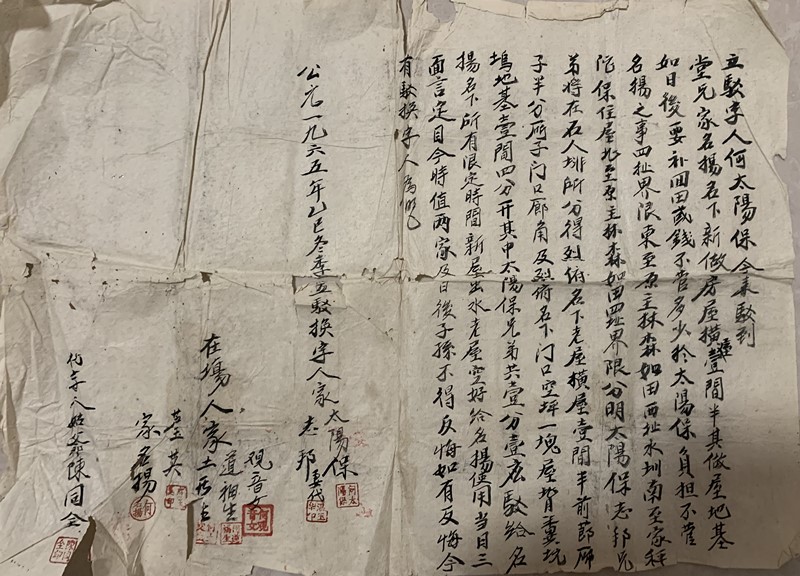 立駁字人何太陽保今来駁到
堂兄家名揚名下新做房屋橫屋壹間半其做屋地基
如日後要补回田或錢不管多少於太陽保負担不管
名揚之事四址界限東至原主林森如田西址水圳南至家祥
陀保住屋北至原主林森如田四址界限分明太陽保志邦兄
弟將在石人排所分得烈府名下老屋橫屋壹間半前節厢
子半分所子门口廊角及烈府名下门口空坪一塊屋背糞坑
塢地基壹間四分开其中太陽保兄弟共壹分壹应駁給名
揚名下所有限定時間新屋出水老屋空好給名揚使用当日三
面言定目今時值两家及日後子孫不得反悔如有反悔今
有駁換字人為照
公元一九六五年乙巳冬季立駁換字人家太陽保
志邦
在塲人家
觀音
道祖生
土
英
家名揚
代字人姑爺陳同全